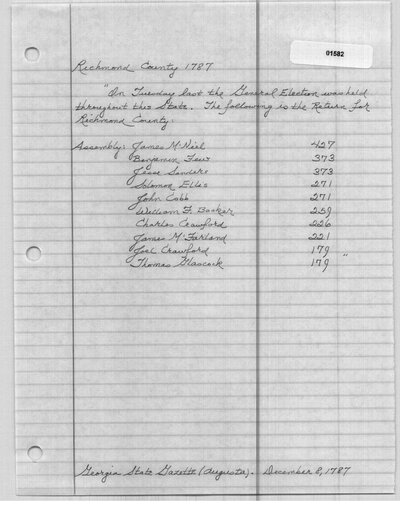 01582
Richmond County 1787
"On Tuesday last the General Election was held
throughout this State. The following is the Return for
Richmond County:
Assembly: James McNeil 427
Benjamin Few 373
Jesse Sanders 373
Solomon Ellis 271
John Cobb 271
William F. Booker 259
Charles Crawford 226
James McFarland 221
Joel Crawford 179
Thomas Glascock 179 "
Georgia State Gazette (Augusta). December 8, 1787